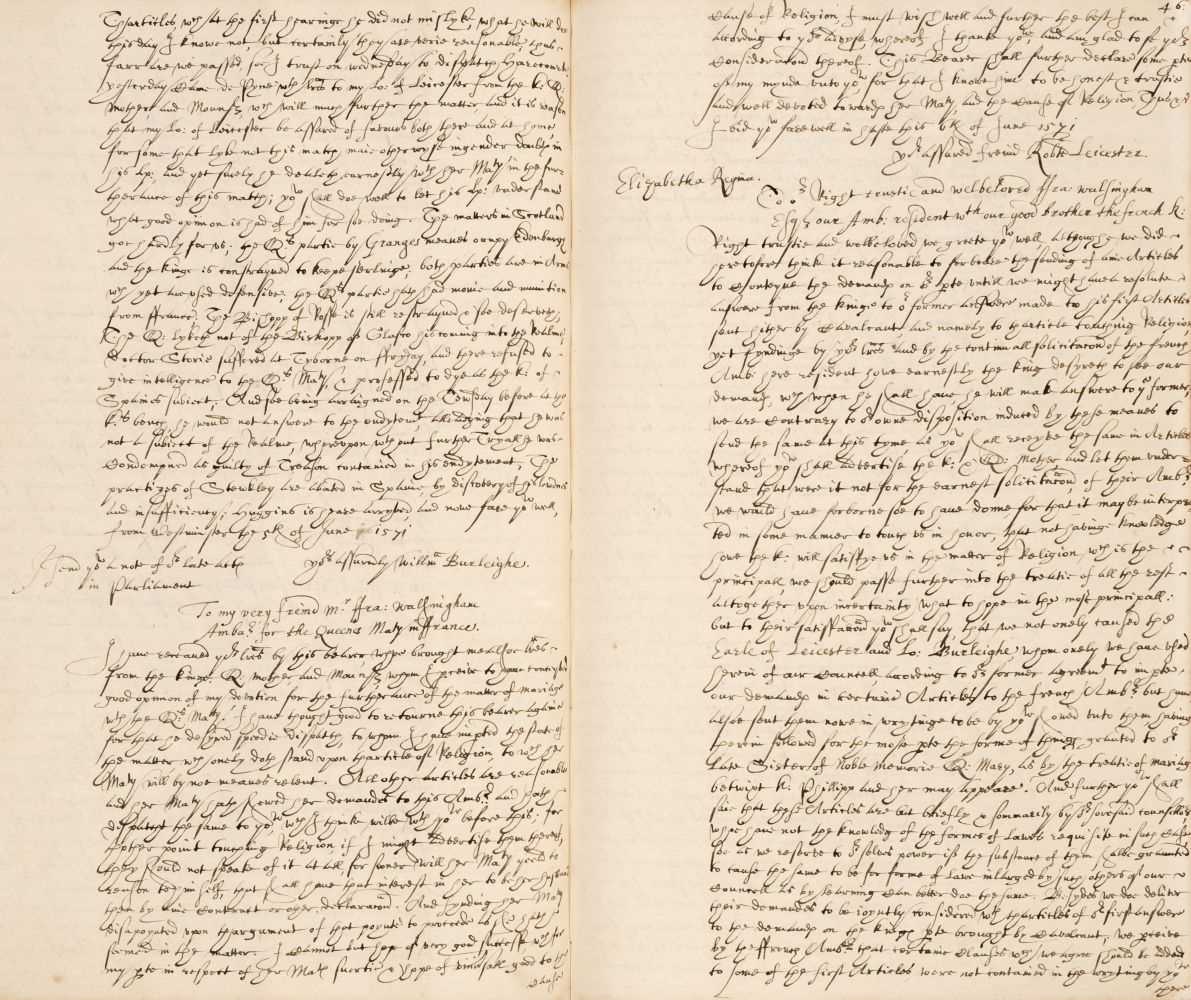 Tharticles wch at the first hearinge he did not mislyke, what he will doe
this day I knowe not, but certainly they are verie reasonable, thus
farr are we passed, for I trust on wednesday to dispatch Harecourt
yesterday came de Pyne wth lres to my Lo: of Leicester from the k: Q:
Mother, and Mounsr wch will much further the matter and it is reason
that my Lo: of Leicester be assured of favours both there and at home
for some that lyke not this match, maie otherwyse ingender doubts in
his Lp: and yet surely he dealeth earnestly wth her Maty in the fur-
therance of this match; yow shall doe well to let his Lp: understand
what good opinion is had of him for soe doing. The matters in Scotland
goe hardly for us; the Qs partie by Granges meanes occupy Edenburgh
and the kinge is constrayned to keepe Sterlinge, both parties are in Armes
wch yet are used defensive, the Qs partie hath had monie and munition
from ffrance. The Bishopp of Rosse is still restrayned & soe deserveth,
The Q: lyketh not of the Bishopp of Glasco his coming into the Realme,
Doctor Storie suffered at Tyborne on ffryday, and there refused to
give intelligence to the Qs Maty, & professed to dye as the k: of
Spaines subiect, And soe being arraigned on the Tewsday before at the
ks bench, he would not answere to the endytemt alleadging that he was
not a subiect of the realme, wherupon wthout further Tryall he was
Condempned as guilty of Treason contained in his endytement, The
practizes of Stewkley are abated in Spaine, by discovery of his lewdnes
and insufficiency; Huggins is heare arryved, and nowe fare yow well,
from Westminster the 5th of June 1571
I send yow a note of or late acts
in Parliament
yors assuredly Willm Burleighe.
To my very frend Mr ffra: Walsingham
Ambar for the Queenes Maty in ffrance.
I have receaved yor lres by this bearer, whoe brought me also lres
from the kinge Q. mother and Mounsr whom I perceive to have conceyved
good opinion of my devotion for the furtherance of the matter of mariage
wth the Qs Maty. I have thought good to retourne this bearer againe
for that he desyred speedie dispatch, to whom I have imparted the state of
the matter wch onely doth stand upon tharticle of Religion, to wch her
Maty will by noe meanes relent. All other articles are reasonable
and her Maty hath shewed her demandes to this Ambr and hath
dispatcht the same to yow wch I think wilbe wth yow before this; for
thother point touching Religion if I might advertise them thereof,
they should not speake of it at all, for soner will her Maty yeeld to
reason to him self, that shall have that interest in her to be her husband
then by anie contract or other declaracon. And fynding her Maty
disapoynted upon thargument of that poynte to proceede as she hath
semed in the matter. I cannot but hope of very good successe wch for
my pte in respect of her Mats suertie & hope of vniversall good to the
cause
46.
Cause of Religion, I must wish well and further the best I can
According to yor advyse, whereof I thanke yow, and am glad to se yor
Consideration thereof. This Bearer shall further declare some pte
of my mynde unto yow for that I knowe him to be honest & trustie
and well devoted towards her Maty and the Cause of Religion. Thus
I bid yow farewell in hast this 6th of June 1571
yor assured frend Robte Leicester.
Elizabetha Regina.
To or Right trustie and welbeloved ffra: walsingham
Esqr our Amb: resident wth our good brother the french k:
Right trustie and welbeloved we greete yow well although we did
heretofore think it reasonable to forbeare the sending of anie Articles
to Conteyne the demands on or pte untill we might have a resolute
answere from the kinge to or former answere made to his first Articles
sent hither by Cavalcant and namely to tharticle touching Religion,
yet fyndinge by yor lres and by the continuall solicitacon of the french
Ambr here resident howe earnestly the king desyreth to see our
demands, wch when he shall have he will make answere to or former,
we are Contrary to or owne disposition induced by these meanes to
send the same at this tyme as yow shall receyve the same in Articles
whereof yow shall advertise the k: & Q: Mother and let them under-
stand that were it not for the earnest solicitacon of their Ambr
we would have forborne soe to have donne for that it maybe interpre
ted in some manner to touch us in honor, that not havinge knowledge
howe the k: will satisfye us in the matter of Religion, wch is the
principall, we should passe further into the treatie of all the rest
altogether upon incertainty what to hope in the most principall:
but to their satisfacon yow shall say, that we not onely caused the
Earle of Leicester and Lo: Burleighe, whom onely we have used
herein of our Councell, according to or former agreemt to impte
our demands in certaine Articles to the french Ambr but have
alsoe sent them nowe in wrytinge to be by yow shewed unto them having
therein followed for the most pte the forme of things granted to or
Late Sister of Noble Memorie Q: Mary, as by the treatie of mariage
betwixt k: Phillipp and her may appeare. And further yow shall
saie that these Articles are but briefly & sommarily by or foresaid councellors
whoe have not the knowledg of the formes of Lawes requisite in such Causes
soe as we reserve to or selves power if the substance of them shalbe graunted
to cause the same to be for forme of Lawe inlarged by such others of our
Councell as by learning can better doe the same. Besydes we doe deliver
their demandes to be ioyntly considered wth tharticles of or first answere
to the demands on the kings pte brought by Cavalcant, we perceive
by the ffrench Ambr that certaine clauses wch we agree should be added
to some of the first Articles were not contained in the wryting by yow
there